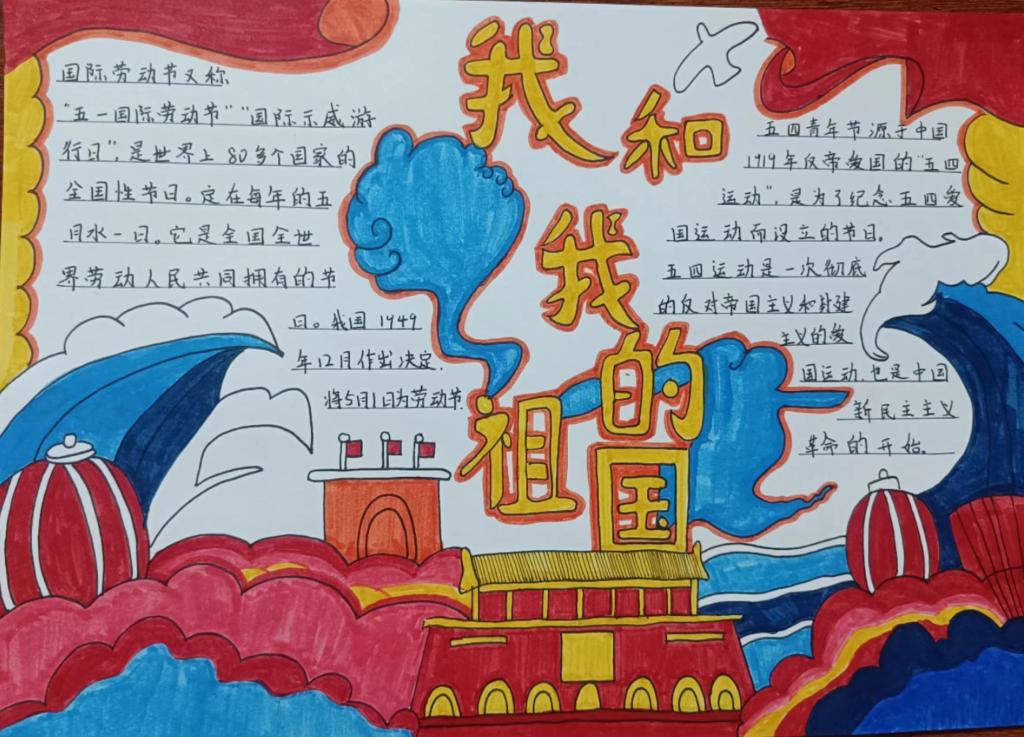 我和
我的
祖国
国际劳动节又称
“五一国际劳动节”“国际示威游
行日”，是世界上80多个国家的
全国性节日。定在每年的五
月水一日。它是全国全世
界劳动人民共同拥有的节
日。我国1949
年12月作出决定.
将5月1日为劳动节.
五四青年节源于中国
1919年反帝爱国的“五四
运动”，是为了纪念五四爱
国运动而设立的节日.
五四运动是一次彻底
的反对帝国主义和封建
主义的爱
国运动.也是中国
新民主主义
革命的开始.